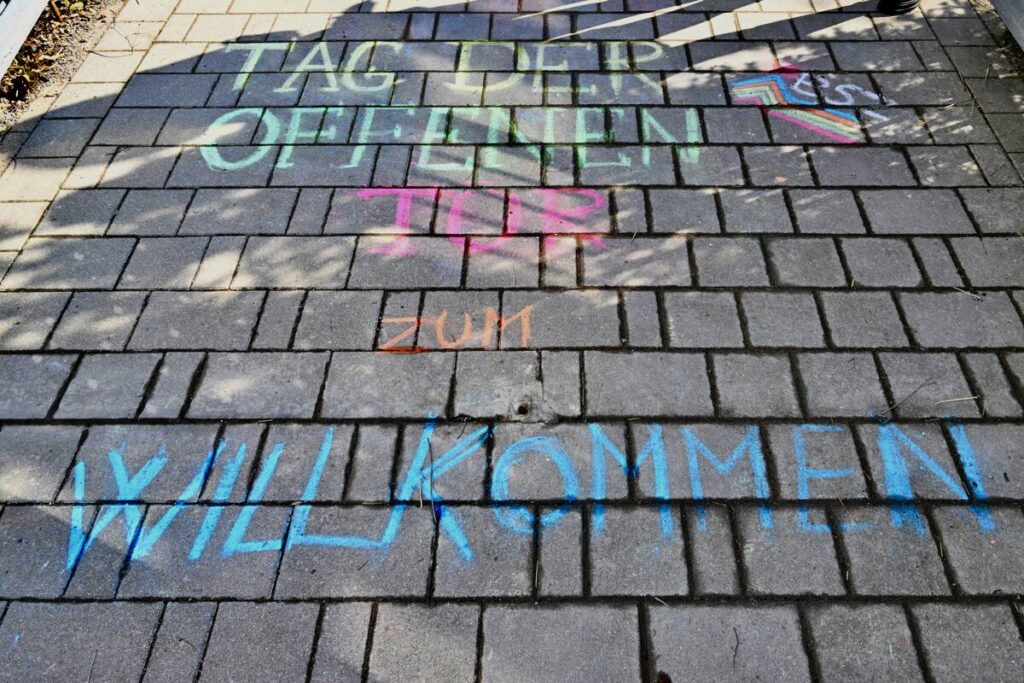 WILLKOMMEN
ZUM
TAG DER
OFFENEN
TOR